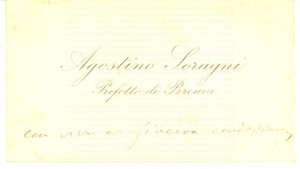 Agostino Soragni
Prefetto di Brescia
con viva e sincera